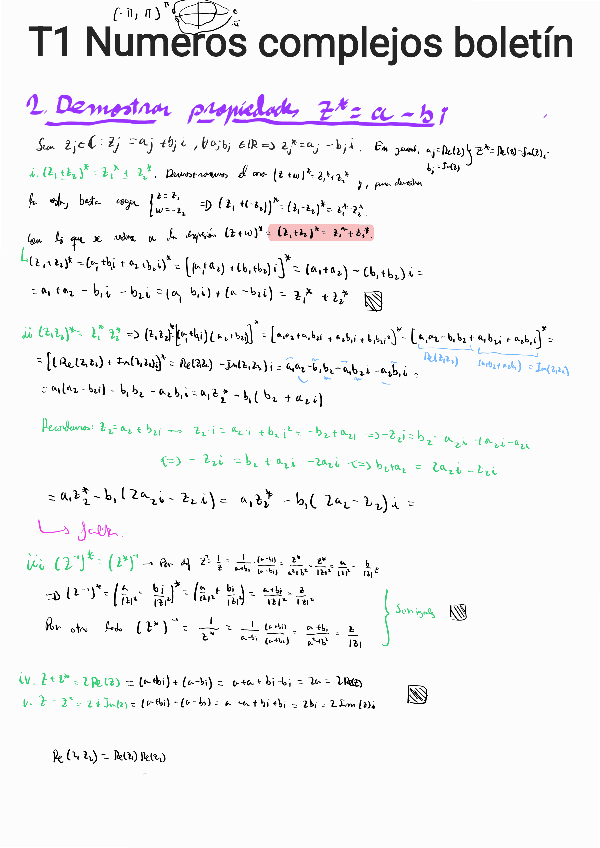 (-π, π)
T1 Numeros complejos boletín
2. Demostrar propiedades z* = a - bi
Sean zj ∈ ℂ : zj = aj + bj i, ∀ aj bj ∈ ℝ => zj* = aj - bj i. En general, aj = Re(z) bj = Im(z) } z* = Re(z) - Im(z)i
i. (z1 + z2)* = z1* + z2*. Demostraremos el caso (z + w)* = z1* + z2* y, para demostrar
lo esto, basta coger { z = z1 w = -z2 => (z1 + (-z2))* = (z1 - z2)* = z1* - z2*
Con lo que se reduce a la expresión (z + w)* = (z1 + z2)* = z1* + z2*
(z1 + z2)* = (a1 + b1i + a2 + b2i)* = [(a1 + a2) + (b1 + b2)i]* = (a1 + a2) - (b1 + b2)i =
= a1 + a2 - b1i - b2i = (a1 b1i) + (a - b2i) = z1* + z2*
ii (z1z2)* = z1* z2* => (z1z2)* = [(a1 + b1i)(a2 + b2i)]* = [a1a2 + a1b2i + a2b1i + b1b2i²]* = [a1a2 - b1b2 + a1b2i + a2b1i]* =
= [(Re(z1z2) + Im(z1z2)i]* = Re(z1z2) - Im(z1z2)i = a1a2 - b1b2 - a1b2i - a2b1i =
Re(z1z2) (a1b2 + a2b1) = Im(z1z2)
= a1(a2 - b2i) - b1b2 - a2b1i = a1z2* - b1(b2 + a2i)
Recordamos: z2 = a2 + b2i → z2·i = a2·i + b2i² = -b2 + a2i => -z2i = b2 - a2i
<=> - z2i = b2 + a2i - 2a2i <=> b2 + a2 = 2a2i - z2i
= a1z2* - b1(2a2i - z2i) = a1z2* - b1(2a2 - z2)i =
↳ falta.
iii (z⁻¹)* = (z*)⁻¹ → Por def z⁻¹ = 1/z = 1/(a+bi) · (a-bi)/(a-bi) = z*/(a²+b²) = z*/|z|² = a/|z|² - b/|z|² i
=> (z⁻¹)* = (a/|z|² - bi/|z|²)* = (a/|z|² + bi/|z|²) = (a+bi)/|z|² = z/|z|²
Son iguales
Por otro lado (z*)⁻¹ = 1/z* = 1/(a-bi) (a+bi)/(a+bi) = (a+bi)/(a²+b²) = z/|z|
iv. z + z* = 2Re(z) = (a+bi) + (a-bi) = a + a + bi - bi = 2a = 2Re(z)
v. z - z* = 2 + Im(z) = (a+bi) - (a-bi) = a - a + bi + bi = 2bi = 2Im(z)i
Re(z1z2) = Re(z1) Re(z2)